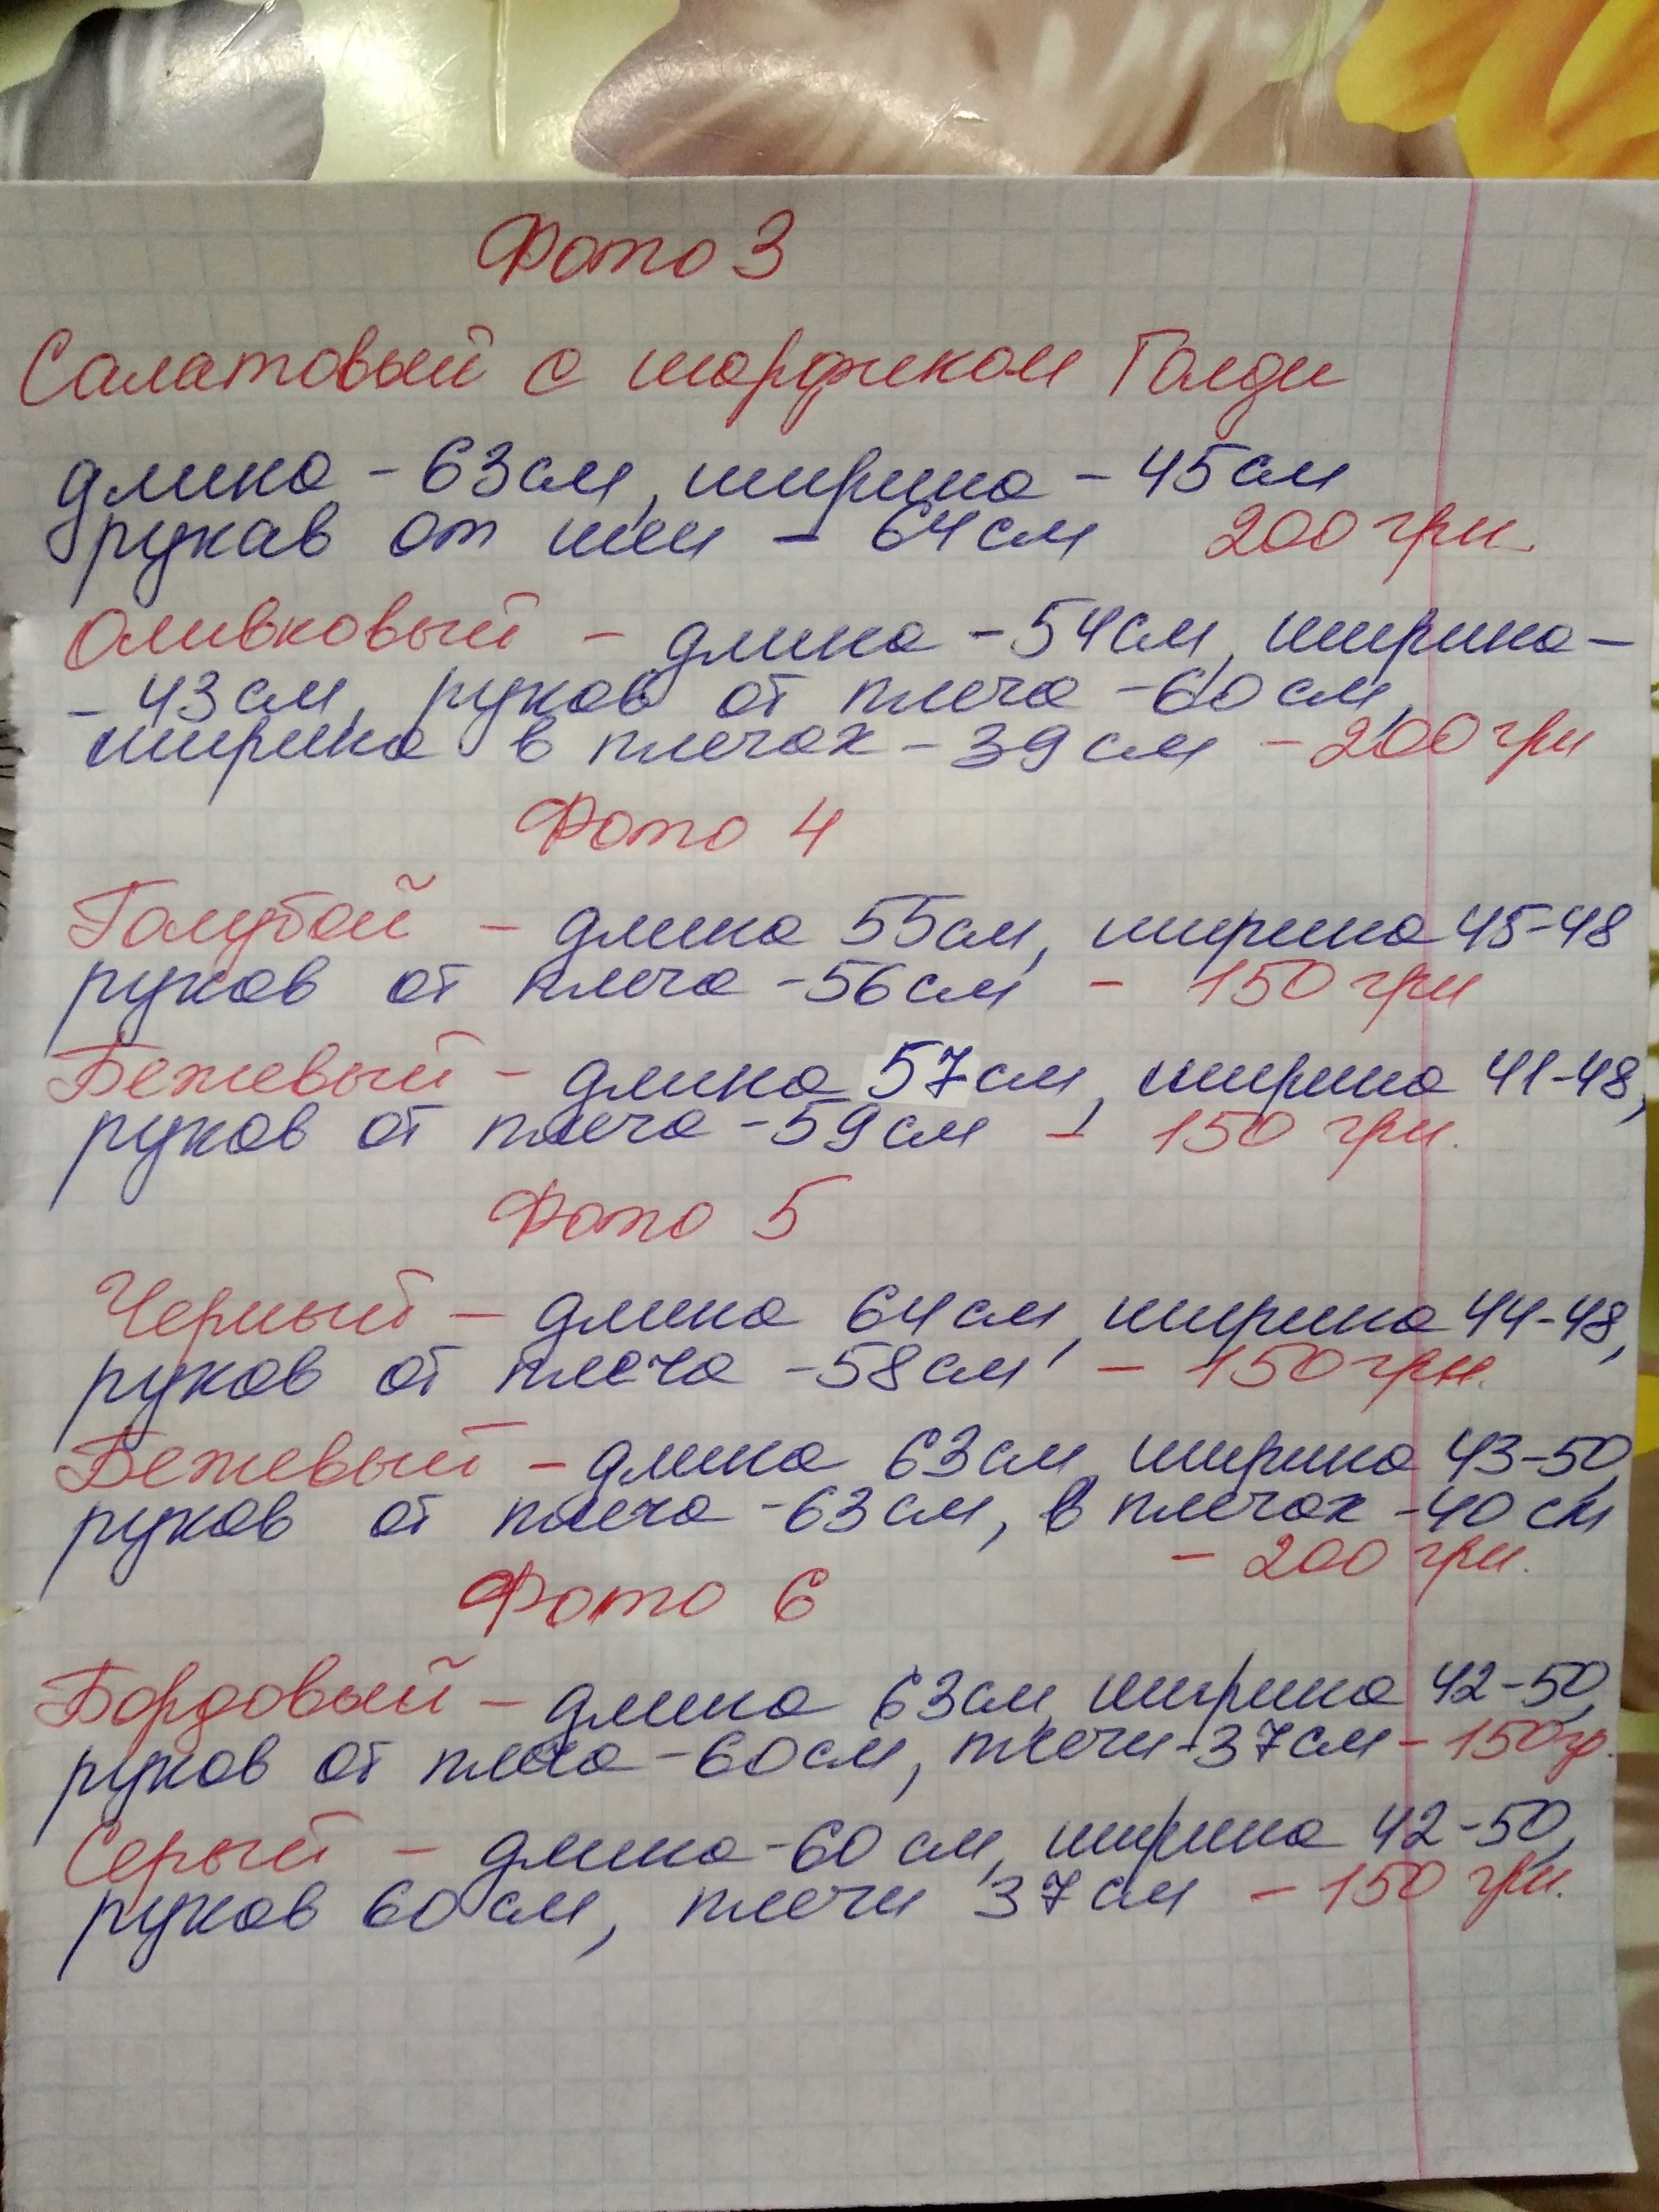 Фото 3
Салатовый с шарфиком Голди
длина - 63см, ширина - 45см
рукав от шеи - 64см 200 грн.
Оливковый - длина - 54см, ширина -
- 43см, рукав от плеча - 60см,
ширина в плечах - 39см - 200 грн
Фото 4
Голубой - длина 55см, ширина 45-48
рукав от плеча - 56см - 150 грн
Бежевый - длина 57см, ширина 41-48,
рукав от плеча - 59см - 150 грн.
Фото 5
Черный - длина 64см, ширина 44-48,
рукав от плеча - 58см - 150 грн.
Бежевый - длина 63см, ширина 43-50,
рукав от плеча - 63см, в плечах - 40см
- 200 грн.
Фото 6
Бордовый - длина 63см, ширина 42-50,
рукав от плеча - 60см, плечи - 37см - 150 гр.
Серый - длина - 60см, ширина 42-50,
рукав 60см, плечи 37см - 150 грн.